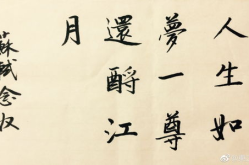 人生如
夢一尊
還酹江
月
蘇軾念奴